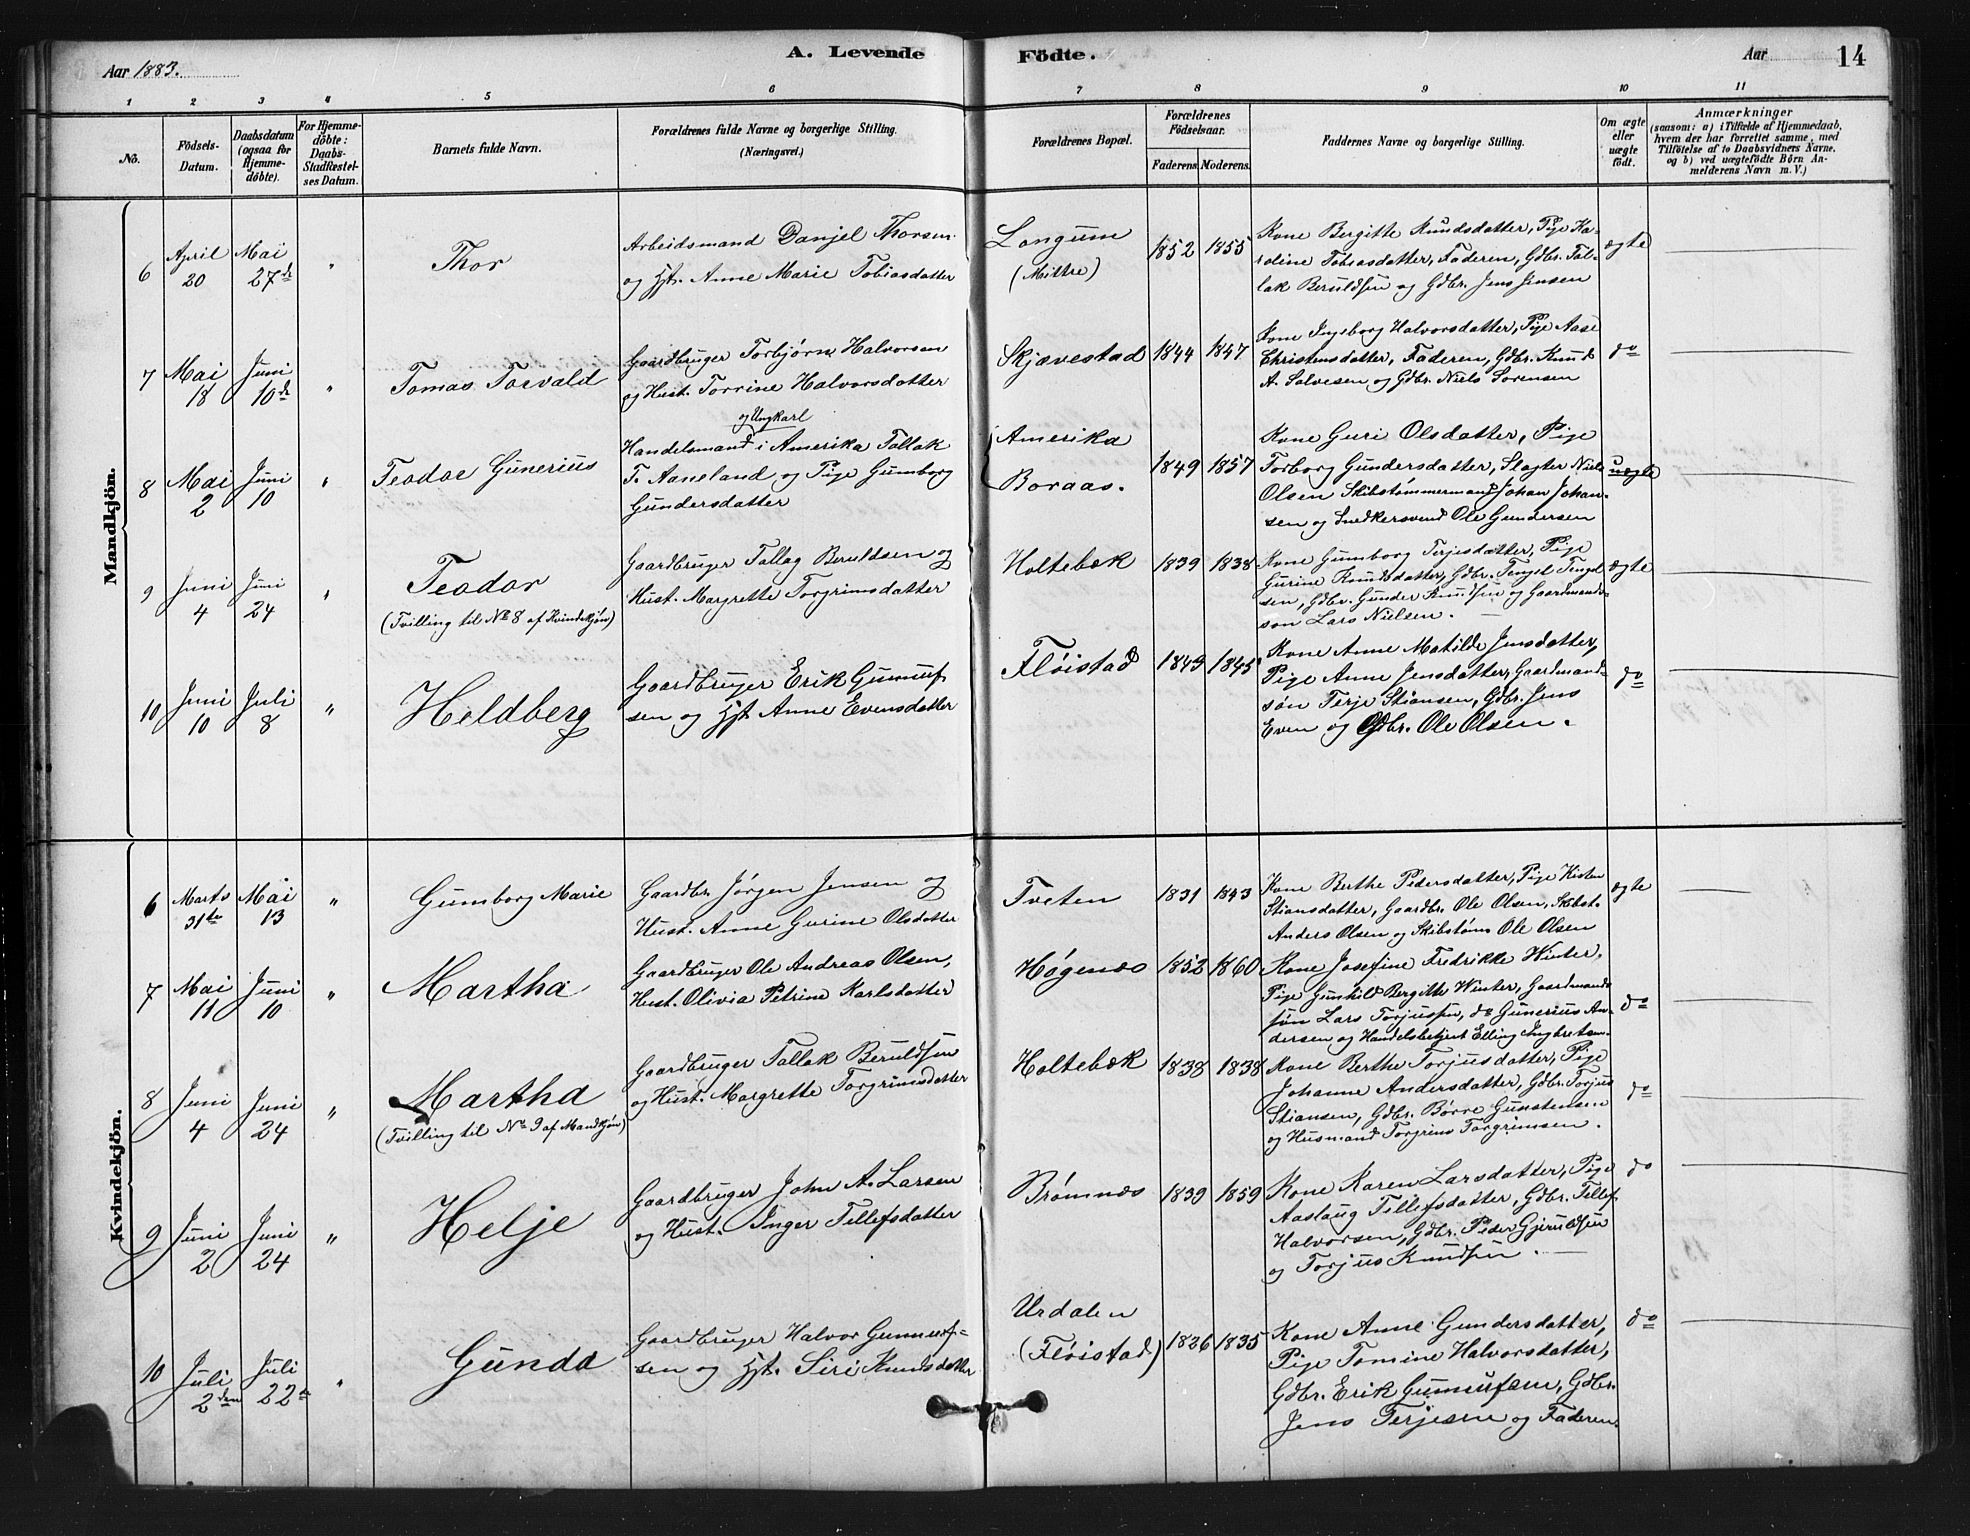 Aar 1883.
A. Levende
Födte.
Aar
14
1 2 3 4 5 6 7 8 9 10 11
No.
Födsels-
Datum.
Daabsdatum
(ogsaa for
Hjemme-
döbte).
For Hjemme-
döbte:
Daabs-
Stadfæstel-
ses Datum.
Barnets fulde Navn.
Forældrenes fulde Navne og borgerlige Stilling.
(Næringsvei.)
Forældrenes Bopæl.
Forældrenes
Födselsaar.
Faderens. Moderens.
Faddernes Navne og borgerlige Stilling.
Om ægte
eller
uægte
födt.
Anmærkninger
(saasom: a) i Tilfælde af Hjemmedaab,
hvem der har forrettet samme, med
Tilföielse af to Daabsvidners Navne,
og b) ved uægtefödte Børn An-
melderens Navn m. V.)
Mandkjön.
6
April
20
Mai
27de
"
Thor
Arbeidsmand Danjel Thorsen
og Hst. Anne Marie Tobiasdatter
Longum
(Mittre)
1852
1855
Kone Bergitte Knudsdatter, Pige Ka-
roline Tobiasdatter, Faderen, Gdbr. Tal-
lak Beruldsen og Gdbr. Jens Jensen
ægte
7
Mai
18
Juni
10de
"
Tomas Torvald
Gaardbruger Torbjørn Halvorsen
og Hust. Torrine Halvorsdatter
Skjævestad
1844
1847
Kone Ingeborg Halvorsdatter, Pige Aase
Christensdatter, Faderen, Gdbr. Knud
A. Salvesen og Gdbr. Niels Sorensen
do
8
Mai
2
Juni
10
"
Teodor Gunerius
og Ungkarl
Handelsmand i Amerika Tallak
T. Aaneland og Pige Gumborg
Gundersdatter
Amerika
Boraas.
1849
1857
Kone Guri Olsdatter, Pige
Torborg Gundersdatter, Slagter Niels
Olsen Skibstømmermand Johan Johan-
sen og Snedkersvend Ole Gundersen
uægte
9
Juni
4
Juni
24
"
Teodor
(Tvilling til No 8 af Kvindekjøn)
Gaardbruger Tallag Beruldsen og
Hust. Margrette Torgrimsdatter
Holtebæk
1839
1838
Kone Gumborg Terjesdatter, Pige
Gurine Knudsdatter, Gdbr. Tengel Tengel
sen, Gdbr. Gunder Knudsen og Gaardmands-
søn Lars Nielsen.
ægte
10
Juni
10
Juli
8
"
Heldberg
Gaardbruger Erik Gunnuf-
sen og Hst. Anne Evensdatter
Fløistad
1849
1845
Kone Anne Matilde Jensdatter,
Pige Anne Jensdatter, Gaardmand-
søn Terje Stiansen, Gdbr. Jens
Even og Gdbr. Ole Olsen.
do
Kvindekjön.
6
Marts
31te
Mai
13
"
Gumborg Marie
Gaardbr. Jörgen Jensen og
Hust. Anne Gurine Olsdatter
Tveten
1831
1843
Kone Berthe Pedersdatter, Pige Kisten
Stiansdatter, Gaardbr. Ole Olsen, Skibst.
Anders Olsen og Skibstøm Ole Olsen
ægte
7
Mai
11
Juni
10
"
Martha
Gaardbruger Ole Andreas Olsen,
Hust. Olivia Petrine Karlsdatter
Høgenæs
1852
1860
Kone Josefine Fredrikke Winter,
Pige Gunhild Bergitte Winter, Gaardmands
søn Lars Torjussen, do Gunerius An-
dersen og Handelsbetjent Elling Ingbretsen.
do
8
Juni
4
Juni
24
"
Martha
(Tvilling til No 9 af Mandkjøn)
Gaardbruger Tallak Beruldsen
og Hust. Margrette Torgrimsdatter
Holtebæk
1838
1838
Kone Berthe Torjusdatter, Pige
Johanne Andersdatter, Gdbr. Torjus
Stiansen, Gdbr. Børre Gunstensen
og Husmand Torgrim Torgrimsen.
do
9
Juni
2
Juni
24
"
Helje
Gaardbruger John A. Larsen
og Hust. Inger Tellefsdatter
Brömnæs
1839
1859
Kone Karen Larsdatter, Pige
Aaslaug Tellefsdatter, Gdbr. Tellef
Halvorsen, Gdbr. Peder Gjeruldsen
og Torjus Knudsen.
do
10
Juli
2den
Juli
22de
"
Gunda
Gaardbruger Halvor Gunnuf-
sen og Hst. Siri Knudsdatter
Urdalen
(Fløistad)
1826
1835
Kone Anne Gundersdatter,
Pige Tomine Halvorsdatter,
Gdbr. Erik Gunnufsen, Gdbr.
Jens Terjesen og Faderen.
do